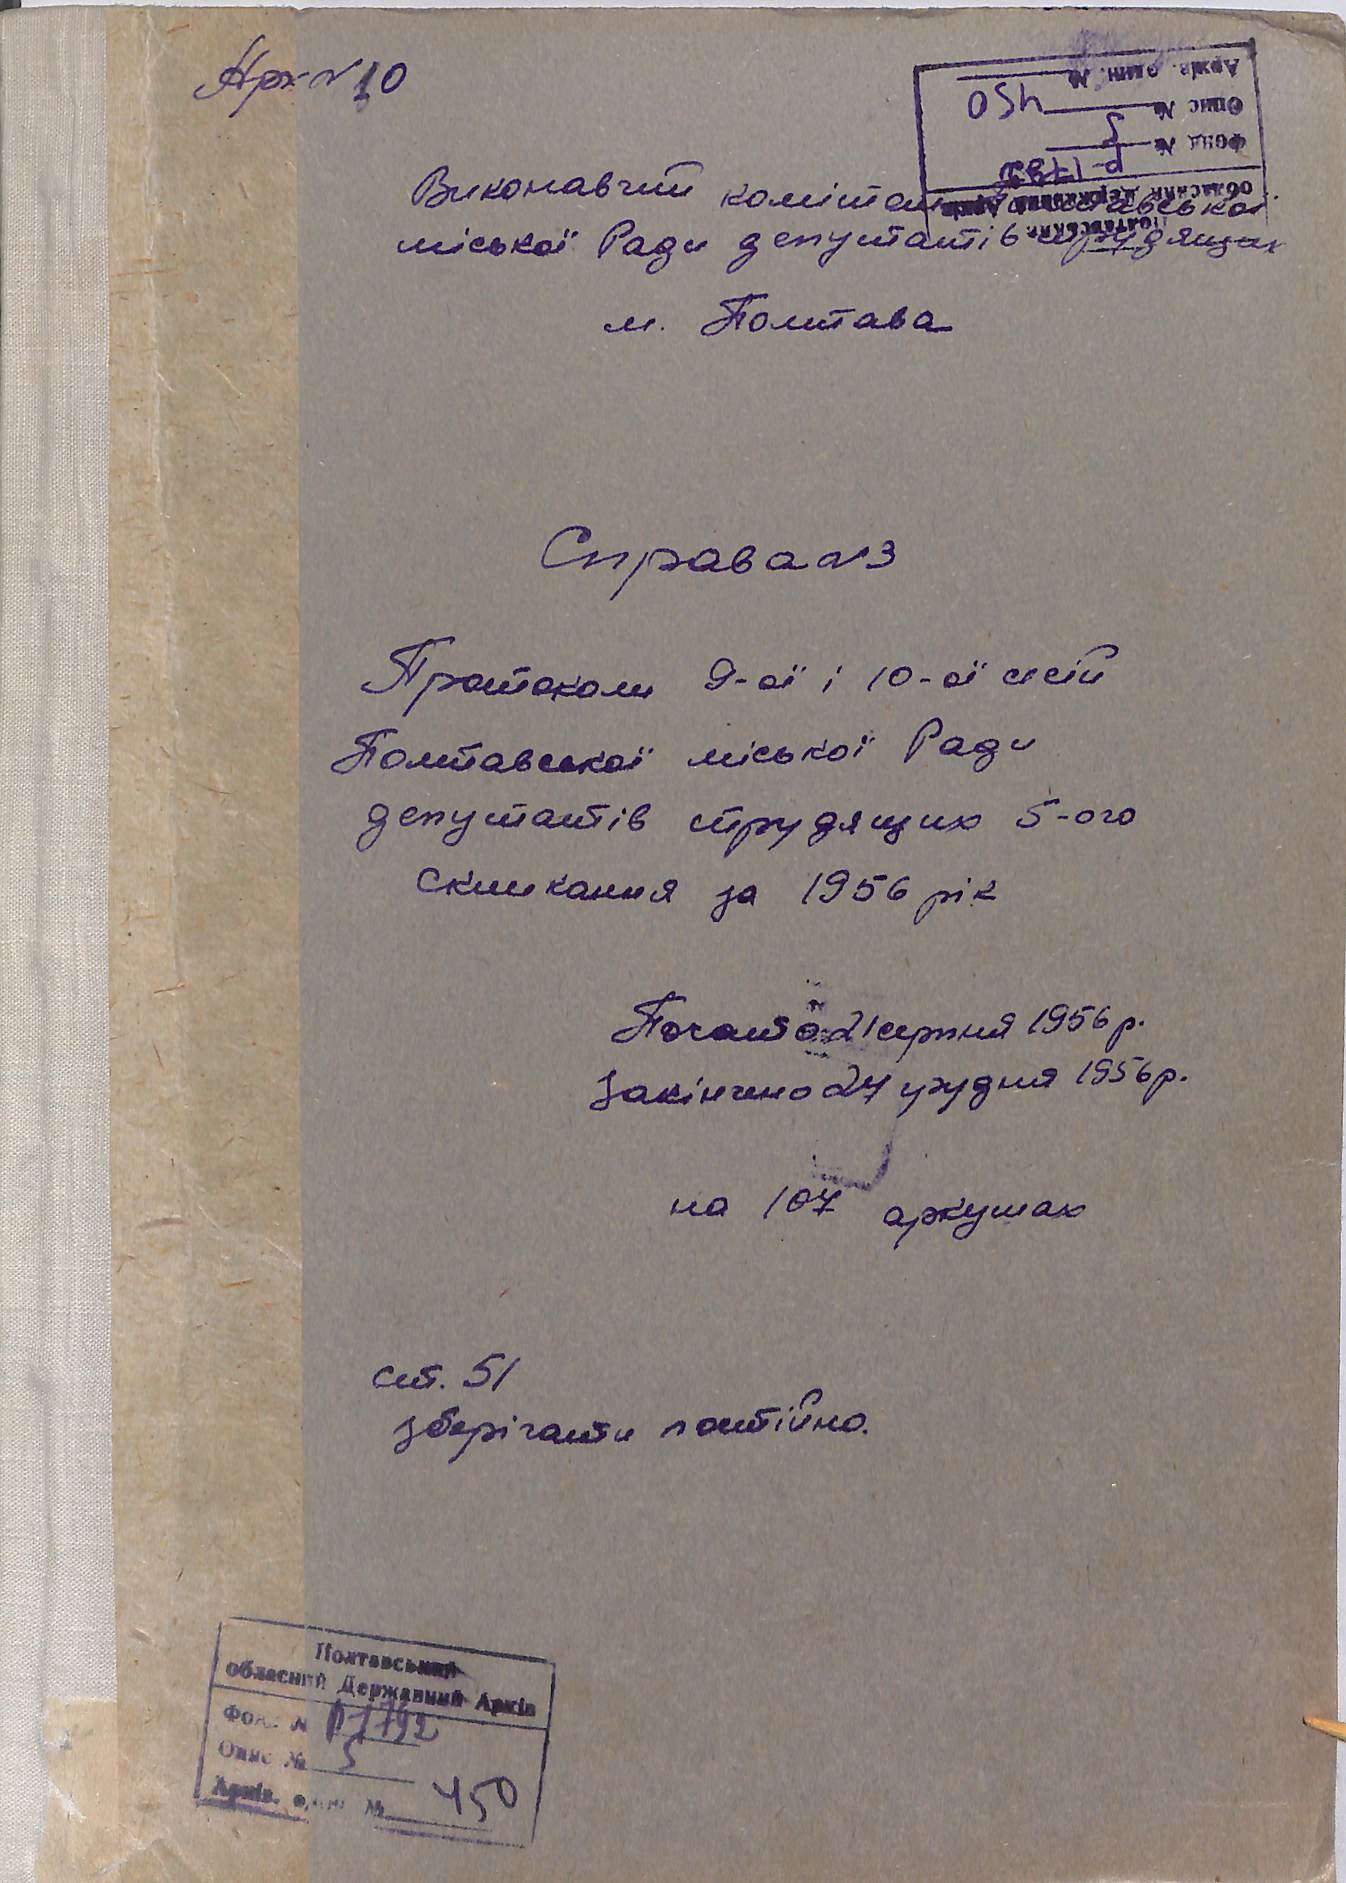 Арх №10
Полтавський
обласний Державний Архів
Фонд №
Опис № 5
Архів. один. № 450
Виконавчий комітет Полтавської
міської Ради депутатів трудящих
м. Полтава
Справа №3
Протоколи 9-ої і 10-ої сесій
Полтавської міської Ради
депутатів трудящих 5-ого
скликання за 1956 рік
Почато 21 серпня 1956 р.
Закінчено 27 грудня 1956 р.
на 107 аркушах
ст. 51
зберігати постійно.
Полтавський
обласний Державний Архів
Фонд № Р1792
Опис № 5
Архів. один. № 450